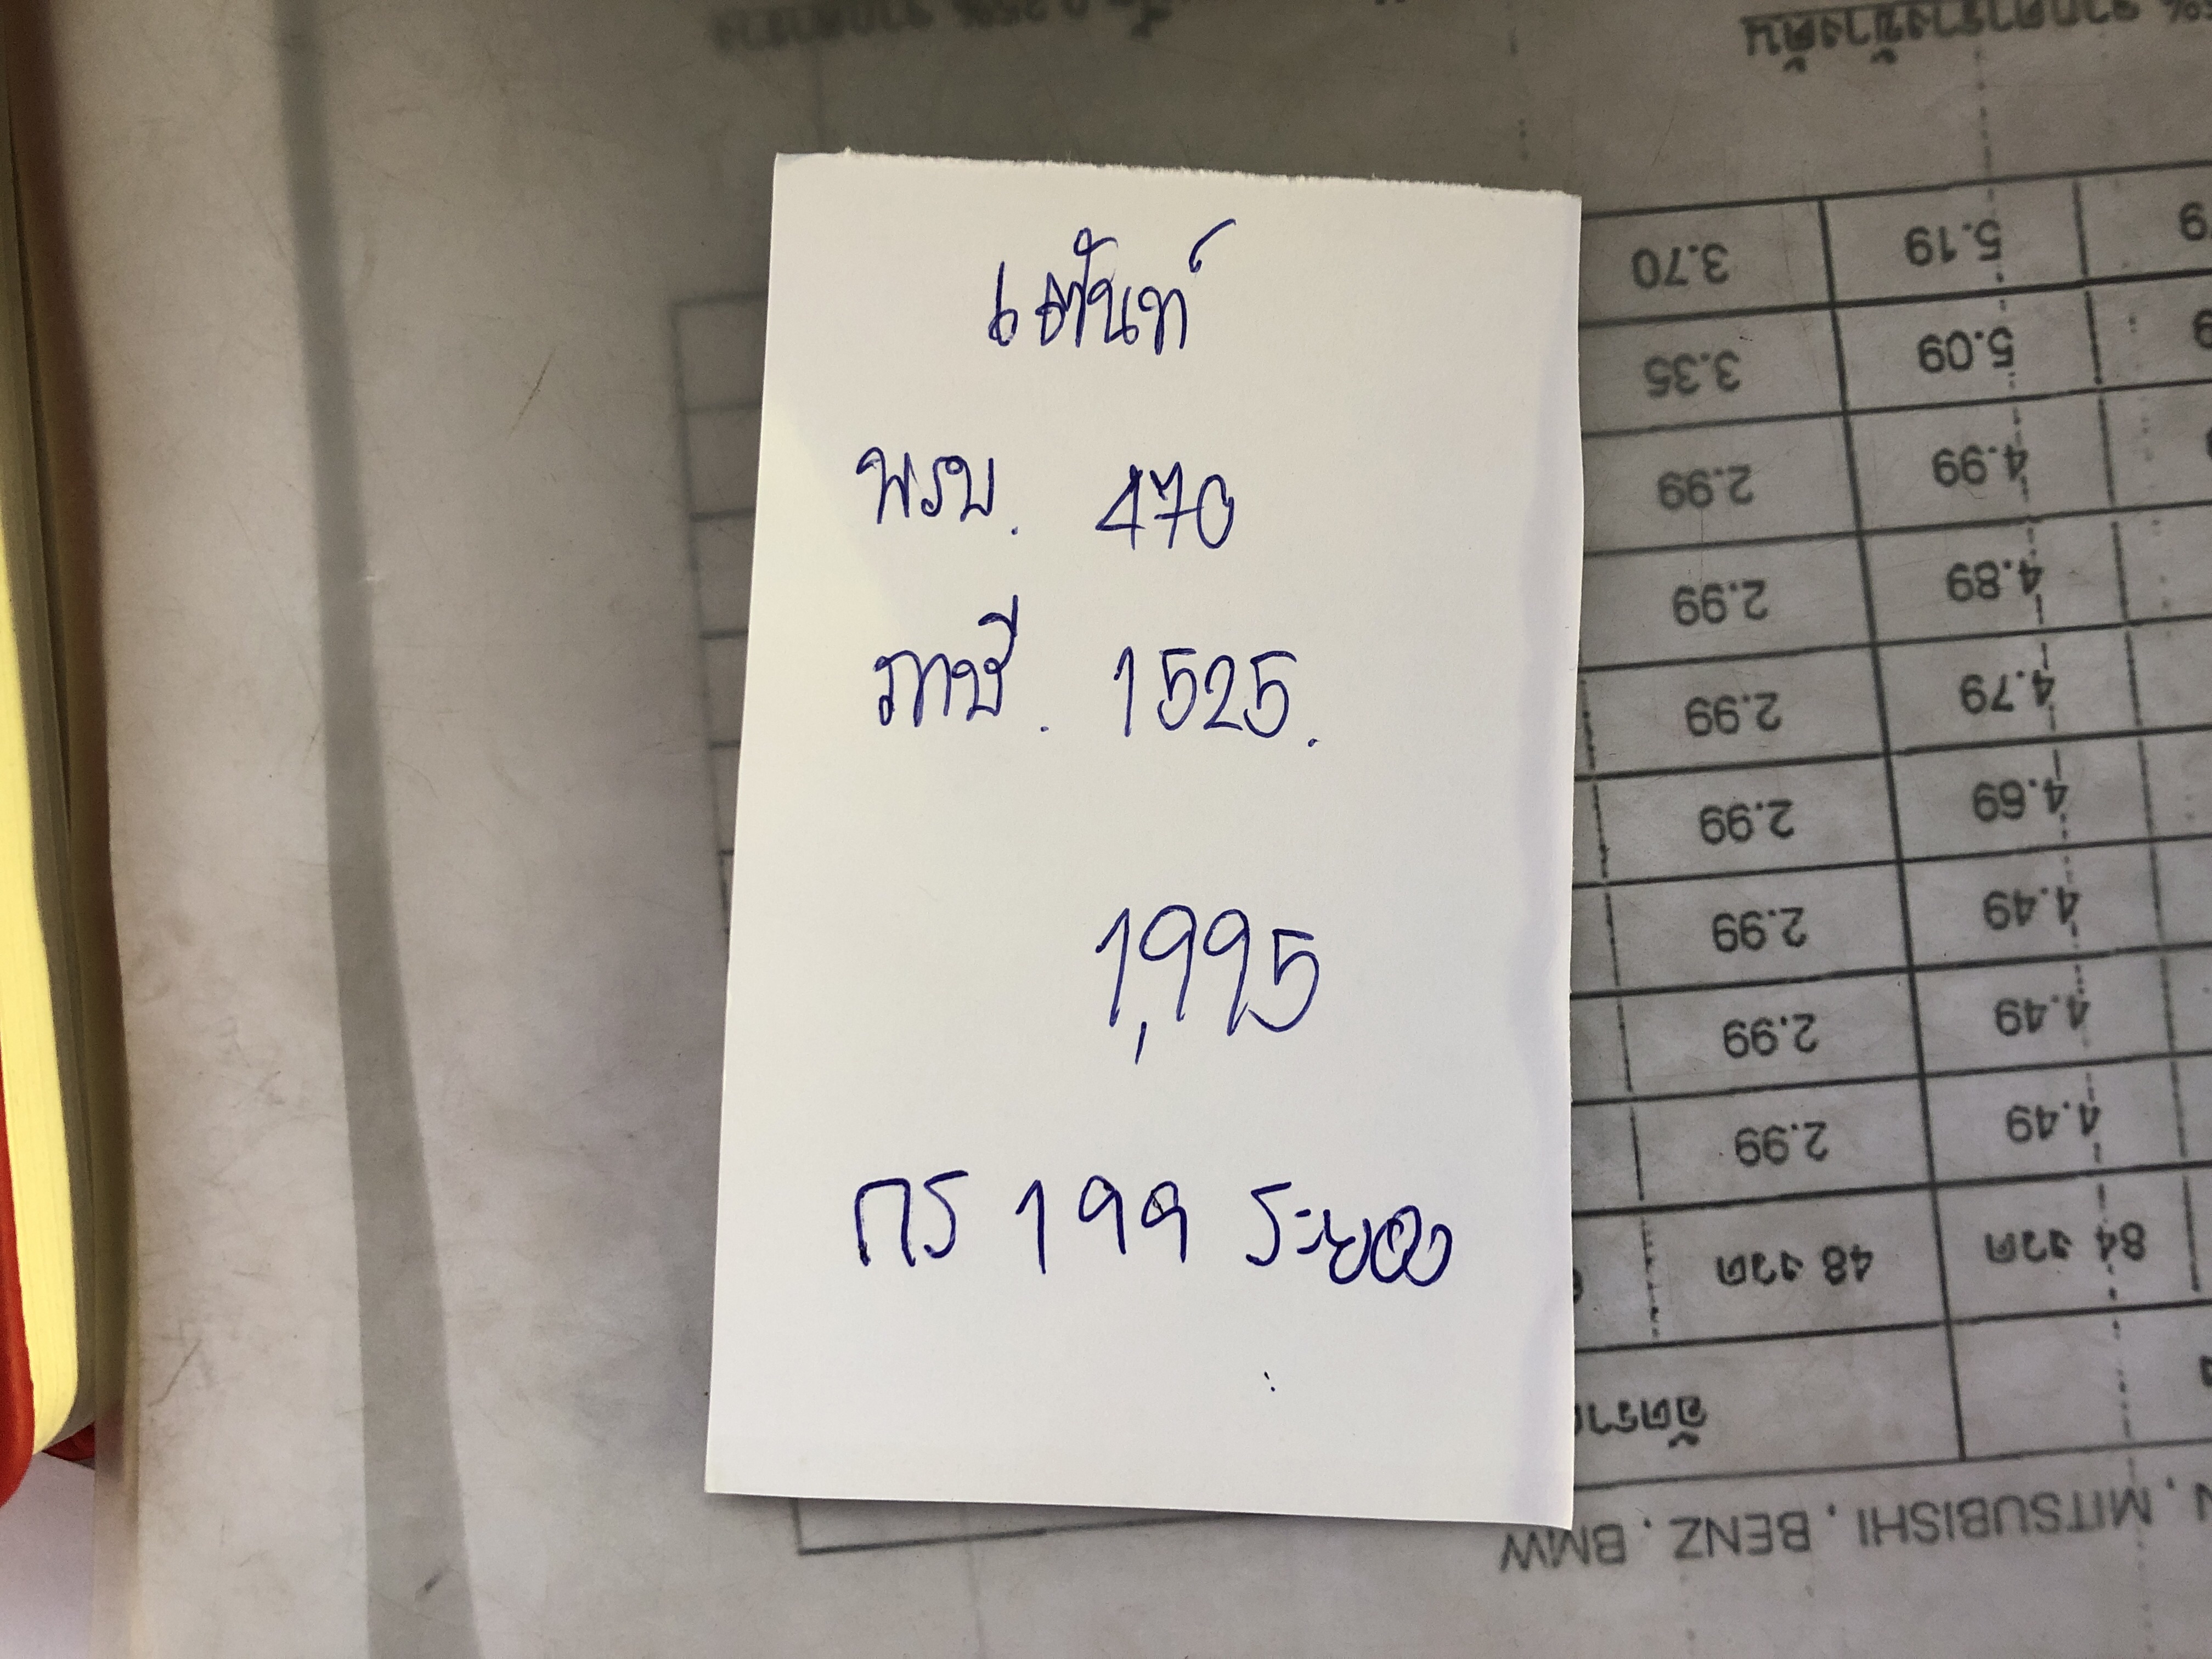 พรบ. 470
ภาษี. 1525.
1,995
กร 199 ระยอง
3.70 5.19
3.35 5.09
2.99 4.99
2.99 4.89
2.99 4.79
2.99 4.69
2.99 4.49
2.99 4.49
2.99 4.49
48 งวด 84 งวด
MITSUBISHI , BENZ , BMW